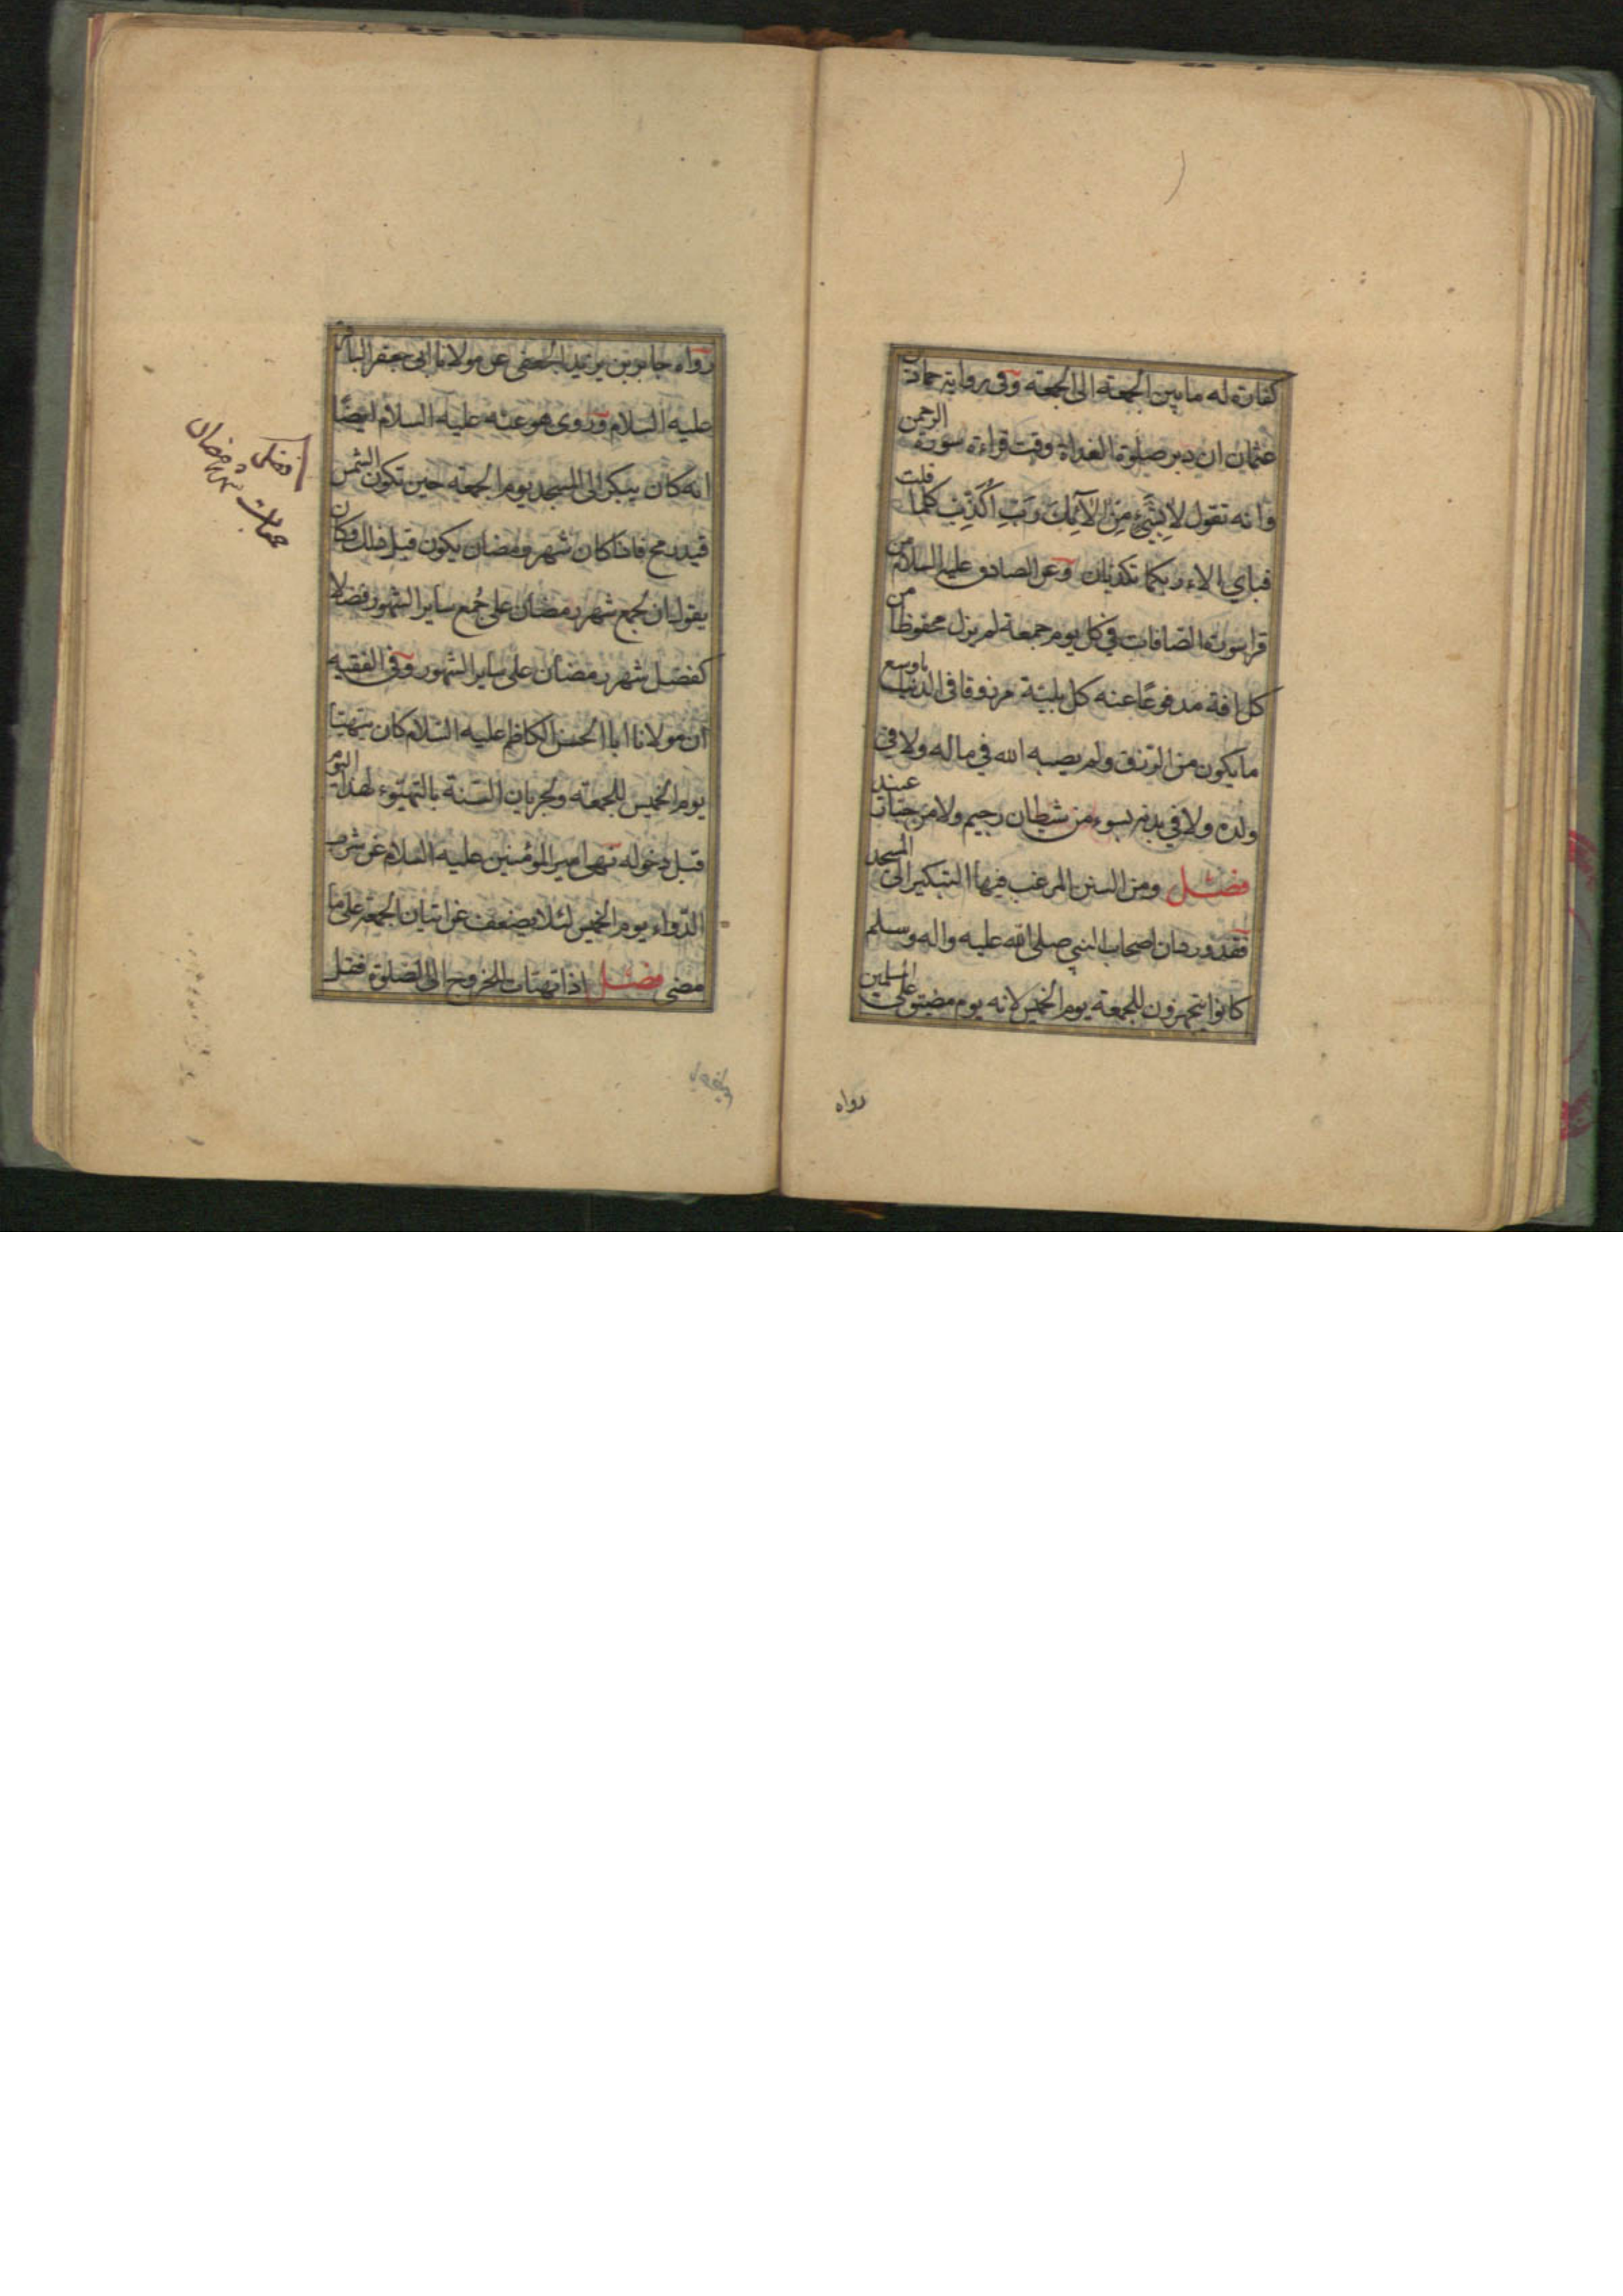 كفارة له ما بين الجمعة الى الجمعة وفي رواية حماد بن
عثمان ان دبر صلوة الغداة وقت قراءة سورة الرحمن
وانه تقول لا بشيء من الآئك رب اكذب كلما قلت
فباي الاء ربكما تكذبان وعن الصادق عليه السلام من
قرا سورة الصافات في كل يوم جمعة لم يزل محفوظا من
كل افة مدفوعا عنه كل بلية مرزوقا في الدنيا باوسع
ما يكون من الرزق ولم يصبه الله في ماله ولا في
ولده ولا في بدنه بسوء من شيطان رجيم ولا من جبار عنيد
فصل ومن السنن المرغب فيها التبكير الى المسجد
فقد ورد ان اصحاب النبي صلى الله عليه واله وسلم
كانوا يتجهزون للجمعة يوم الخميس لانه يوم مضيق على المسلمين
رواه
رواه جابر بن يزيد الجعفي عن مولانا ابي جعفر الباقر
عليه السلام وروى هو عنه عليه السلام ايضا
انه كان يبكر الى المسجد يوم الجمعة حين تكون الشمس
قيد رمح فاذا كان شهر رمضان يكون قبل ذلك وكان
يقول ان لجمع شهر رمضان على جمع ساير الشهور فضلا
كفضل شهر رمضان على ساير الشهور وفي الفقيه
ان مولانا ابا الحسن الكاظم عليه السلام كان يتهيا
يوم الخميس للجمعة ولجريان السنة بالتهيوء لهذا اليوم
قبل دخوله نهى امير المؤمنين عليه السلام عن شرب
الدواء يوم الخميس لئلا يضعف عن اتيان الجمعة على ما
مضى فصل اذا تهيات للخروج الى الصلوة فقل
فضل
جمعات شهر رمضان